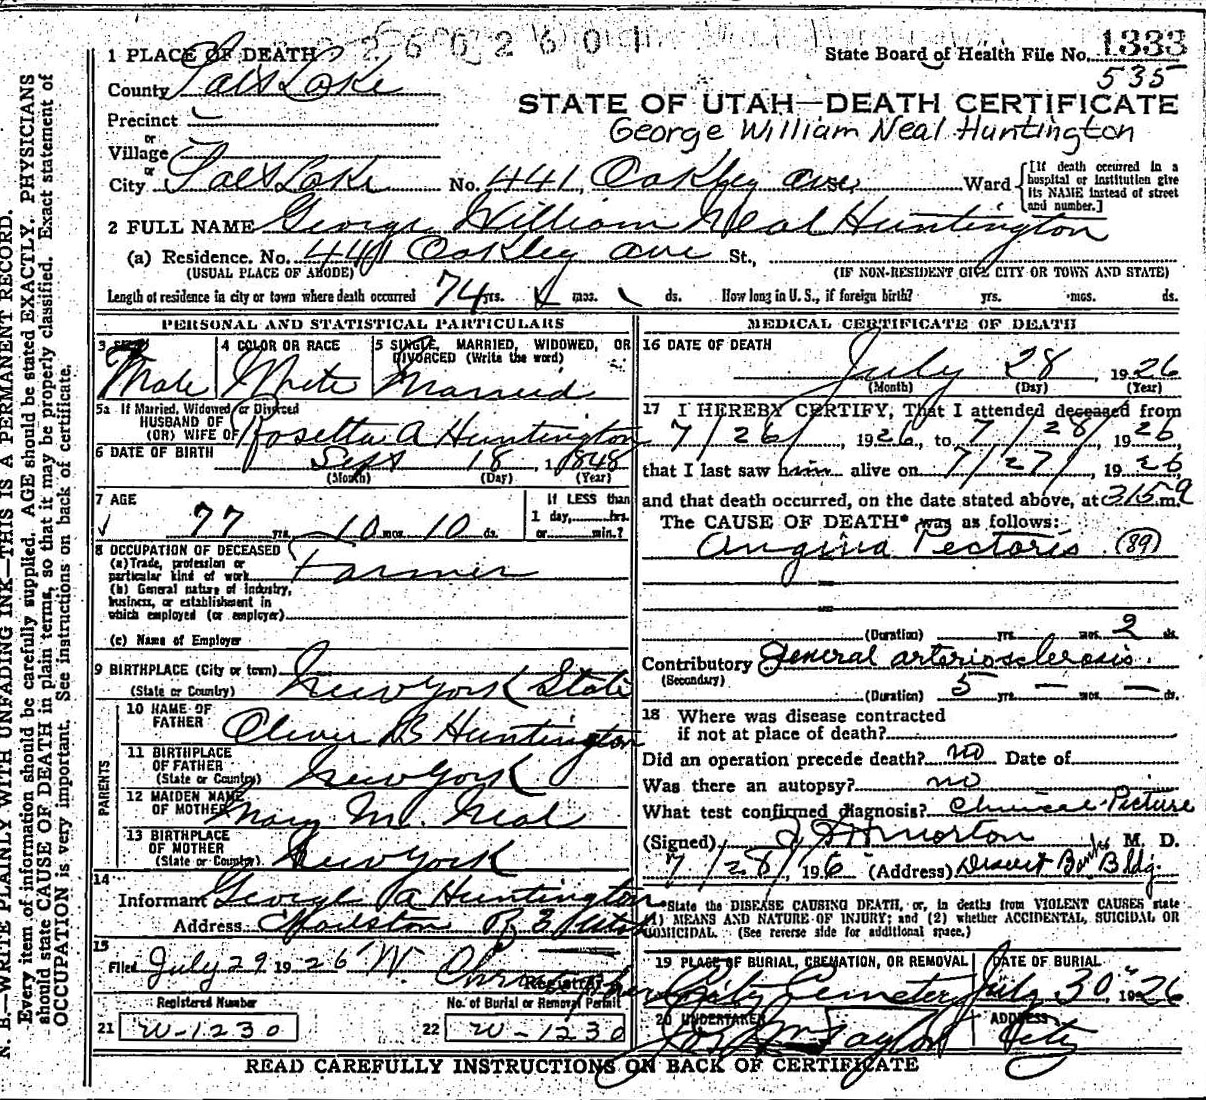 N. B.—WRITE PLAINLY WITH UNFADING INK—THIS IS A PERMANENT RECORD.
Every item of information should be carefully supplied. AGE should be stated EXACTLY. PHYSICIANS
should state CAUSE OF DEATH in plain terms, so that it may be properly classified. Exact statement of
OCCUPATION is very important. See instructions on back of certificate.
1 PLACE OF DEATH
State Board of Health File No. 1333
535
County Salt Lake
STATE OF UTAH—DEATH CERTIFICATE
Precinct
George William Neal Huntington
or
Village
or
City Salt Lake No. 441 Oakley ave St. Ward
[If death occurred in a
hospital or institution give
its NAME instead of street
and number.]
2 FULL NAME George William Neal Huntington
(a) Residence. No. 441 Oakley ave St.,
(USUAL PLACE OF ABODE) (IF NON-RESIDENT GIVE CITY OR TOWN AND STATE)
Length of residence in city or town where death occurred 74 yrs. mos. ds. How long in U. S., if foreign birth? yrs. mos. ds.
PERSONAL AND STATISTICAL PARTICULARS
3 SEX 4 COLOR OR RACE 5 SINGLE, MARRIED, WIDOWED, OR
DIVORCED (Write the word)
Male White Married
5a If Married, Widowed, or Divorced
HUSBAND OF
(OR) WIFE OF Rosetta A Huntington
6 DATE OF BIRTH Sept 18, 1848
(Month) (Day) (Year)
7 AGE
77 yrs. 10 mos. 10 ds.
If LESS than
1 day, hrs.
or min.?
8 OCCUPATION OF DECEASED
(a) Trade, profession or
particular kind of work Farmer
(b) General nature of industry,
business, or establishment in
which employed (or employer)
(c) Name of Employer
9 BIRTHPLACE (City or town)
(State or Country) New York State
PARENTS
10 NAME OF
FATHER Oliver B Huntington
11 BIRTHPLACE
OF FATHER
(State or Country) New York
12 MAIDEN NAME
OF MOTHER Mary M. Neal
13 BIRTHPLACE
OF MOTHER
(State or Country) New York
14
Informant George A Huntington
Address
15
Filed July 29 1926 W.
Registrar
Registered Number No. of Burial or Removal Permit
21 W-1230 22 W-1230
MEDICAL CERTIFICATE OF DEATH
16 DATE OF DEATH
July 28 1926
(Month) (Day) (Year)
17 I HEREBY CERTIFY, That I attended deceased from
7/26/, 1926, to 7/28/, 1926,
that I last saw him alive on 7/27/, 1926
and that death occurred, on the date stated above, at 315 m. a
The CAUSE OF DEATH* was as follows:
Angina Pectoris (89)
(Duration) yrs. mos. 2 ds.
Contributory General arteriosclerosis.
(Secondary)
(Duration) 5 yrs. — mos. — ds.
18 Where was disease contracted
if not at place of death?
Did an operation precede death? no Date of
Was there an autopsy? no
What test confirmed diagnosis? Clinical Picture
(Signed) Morton M. D.
7/28/, 1926 (Address) Deseret Bank Bldg.
*State the DISEASE CAUSING DEATH, or, in deaths from VIOLENT CAUSES state
(1) MEANS AND NATURE OF INJURY; and (2) whether ACCIDENTAL, SUICIDAL OR
HOMICIDAL. (See reverse side for additional space.)
19 PLACE OF BURIAL, CREMATION, OR REMOVAL DATE OF BURIAL
City Cemetery July 30, 1926
20 UNDERTAKER ADDRESS
Taylor City
READ CAREFULLY INSTRUCTIONS ON BACK OF CERTIFICATE